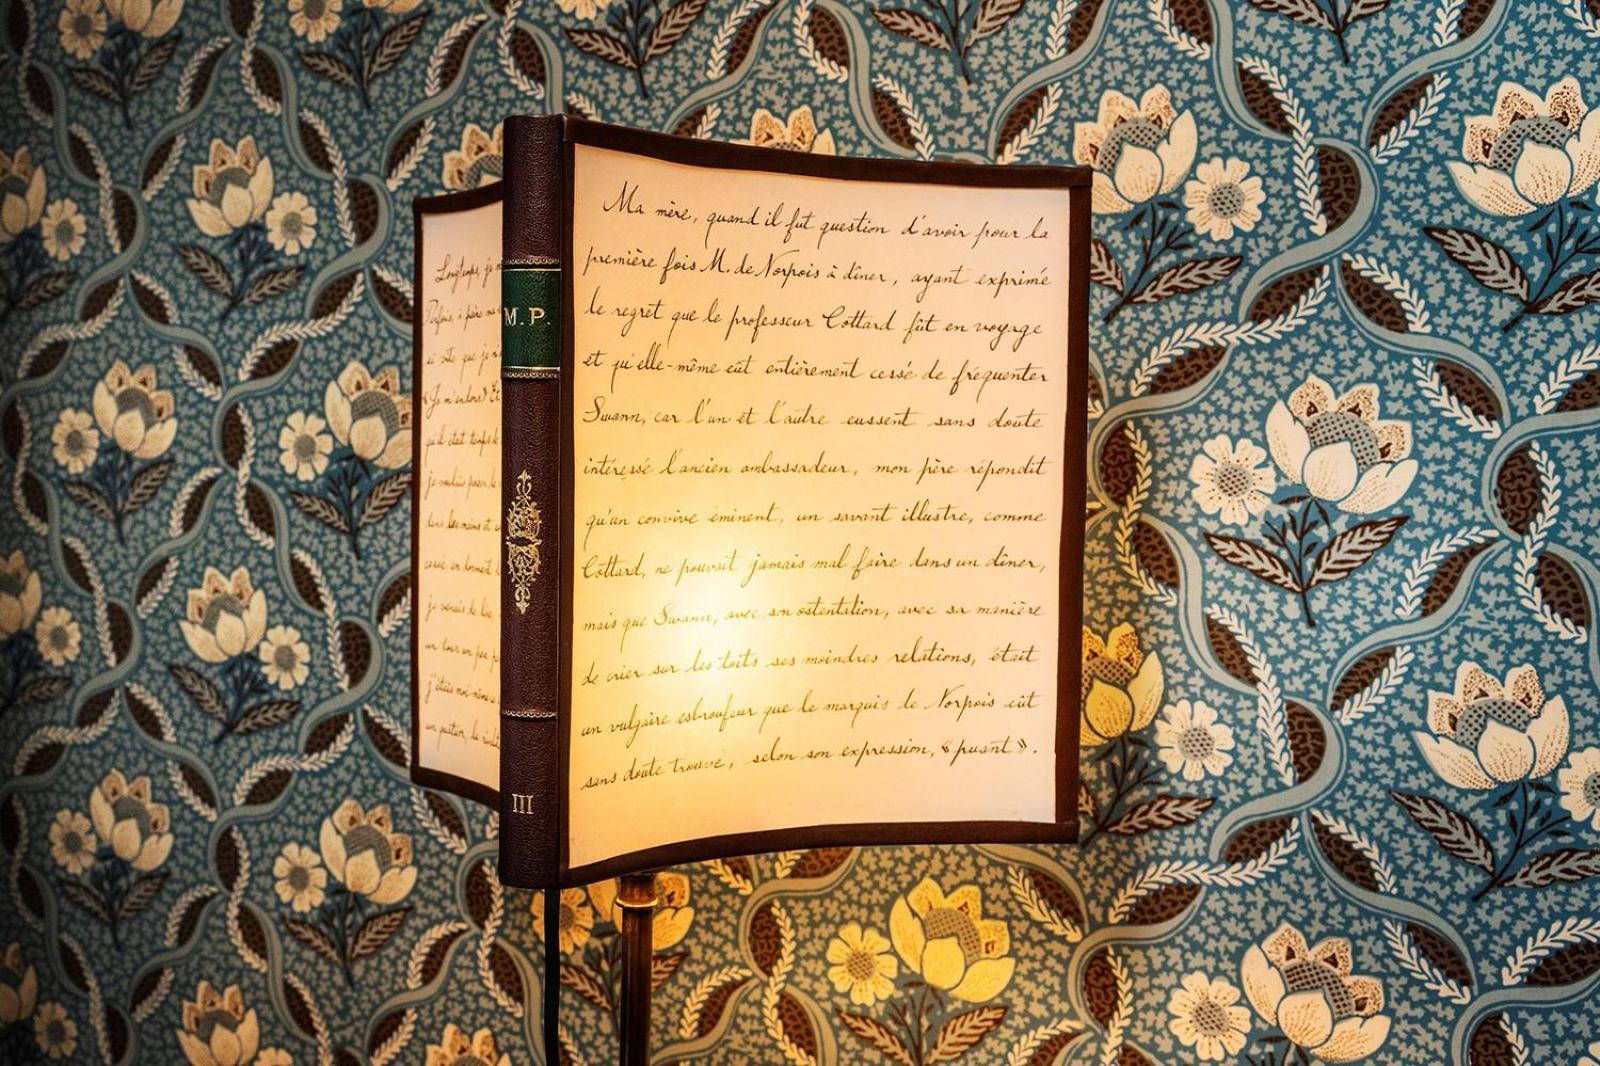 Longtemps, je m
Parfois, à peine ma
si vite que je n
«Je m'endors» Et
qu'il était temps de
je voulais poser le
dans les mains et
cessé en dormant
je venais de lire,
un tour un peu p
j'étais moi-même
un quatuor, la rivali
M.P.
III
Ma mère, quand il fut question d'avoir pour la
première fois M. de Norpois à dîner, ayant exprimé
le regret que le professeur Cottard fût en voyage
et qu'elle-même eût entièrement cessé de fréquenter
Swann, car l'un et l'autre eussent sans doute
intéressé l'ancien ambassadeur, mon père répondit
qu'un convive éminent, un savant illustre, comme
Cottard, ne pouvait jamais mal faire dans un dîner,
mais que Swann, avec son ostentation, avec sa manière
de crier sur les toits ses moindres relations, était
un vulgaire esbroufeur que le marquis de Norpois eût
sans doute trouvé, selon son expression, «puant».